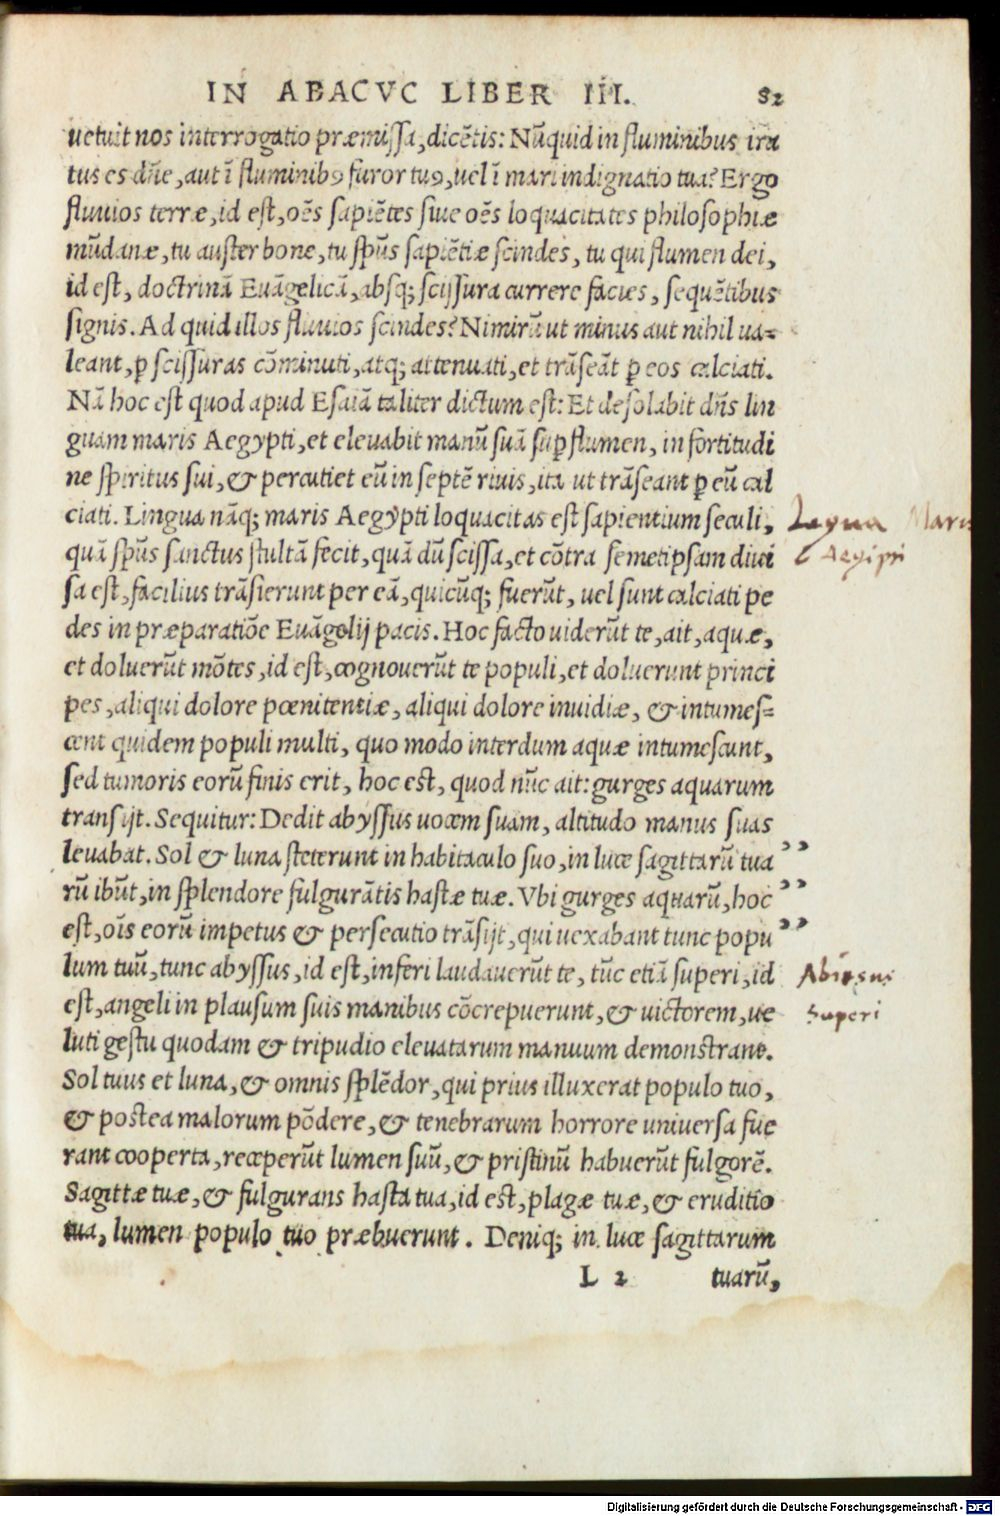 IN ABACVC LIBER III. 82
uetuit nos interrogatio præmissa, dicẽtis: Nũquid in fluminibus ira
tus es dñe, aut ĩ fluminibꝰ furor tuꝰ, uel ĩ mari indignatio tua? Ergo
fluuios terræ, id est, oẽs sapiẽtes siue oẽs loquacitates philosophiæ
mũdanæ, tu auster bone, tu sp̃us sapiẽtiæ scindes, tu qui flumen dei,
id est, doctrinã Euãgelicã, absq; scissura currere facies, sequẽtibus
signis. Ad quid illos fluuios scindes? Nimirũ ut minus aut nihil ua=
leant, ꝑ scissuras cõminuti, atq; attenuati, et trãseãt ꝑ eos calciati.
Nã hoc est quod apud Esaiã taliter dictum est: Et desolabit dñs lin
guam maris Aegypti, et eleuabit manũ suã suꝑ flumen, in fortitudi
ne spiritus sui, & percutiet eũ in septẽ riuis, ita ut trãseant ꝑ eũ cal
ciati. Lingua nãq; maris Aegypti loquacitas est sapientium seculi,
quã sp̃us sanctus stultã fecit, quã dũ scissa, et cõtra semetipsam diui
sa est, facilius trãsierunt per eã, quicũq; fuerũt, uel sunt calciati pe
des in præparatiõe Euãgelij pacis. Hoc facto uiderũt te, ait, aquæ,
et doluerũt mõtes, id est, cognouerũt te populi, et doluerunt princi
pes, aliqui dolore pœnitentiæ, aliqui dolore inuidiæ, & intumes=
cent quidem populi multi, quo modo interdum aquæ intumescunt,
sed tumoris eorũ finis erit, hoc est, quod nũc ait: gurges aquarum
transijt. Sequitur: Dedit abyssus uocem suam, altitudo manus suas
leuabat. Sol & luna steterunt in habitaculo suo, in luce sagittarũ tua ”
rũ ibũt, in splendore fulgurãtis hastæ tuæ. Vbi gurges aquarũ, hoc ”
est, oĩs eorũ impetus & persecutio trãsijt, qui uexabant tunc popu ”
lum tuũ, tunc abyssus, id est, inferi laudauerũt te, tũc etiã superi, id
est, angeli in plausum suis manibus cõcrepuerunt, & uictorem, ue
luti gestu quodam & tripudio eleuatarum manuum demonstrant.
Sol tuus et luna, & omnis splẽdor, qui prius illuxerat populo tuo,
& postea malorum põdere, & tenebrarum horrore uniuersa fue
rant cooperta, receperũt lumen suũ, & pristinũ habuerũt fulgorẽ.
Sagittæ tuæ, & fulgurans hasta tua, id est, plagæ tuæ, & eruditio
tua, lumen populo tuo præbuerunt. Deniq; in luce sagittarum
L 2 tuarũ,
Maris
Aegipti
Superi
Digitalisierung gefördert durch die Deutsche Forschungsgemeinschaft - DFG